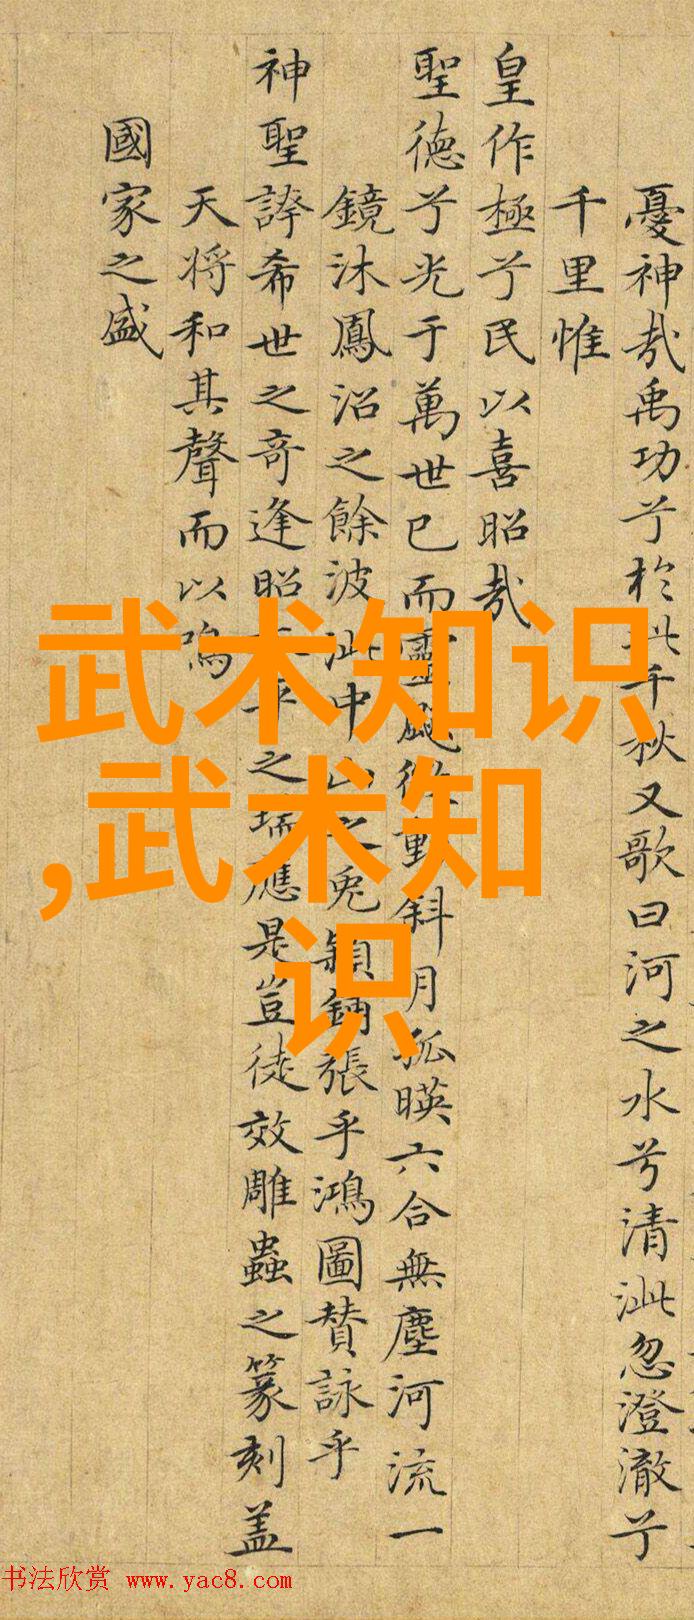 憂神哉禹功兮於此千秋又歌曰河之水兮清泚忽澄澈兮
千里惟
皇作極兮民以喜昭哉
聖德兮光于萬世已而靈飈微動斜月孤暎六合無塵河流一
鏡沐鳳沼之餘波泚中山之兔穎鋪張乎鴻圖賛詠乎
神聖誇希世之奇逢昭平之瑞應是豈徒效雕蟲之篆刻盖
天将和其聲而以鳴
國家之盛
武术知识
,武术知
识
书法欣赏 www.yac8.com